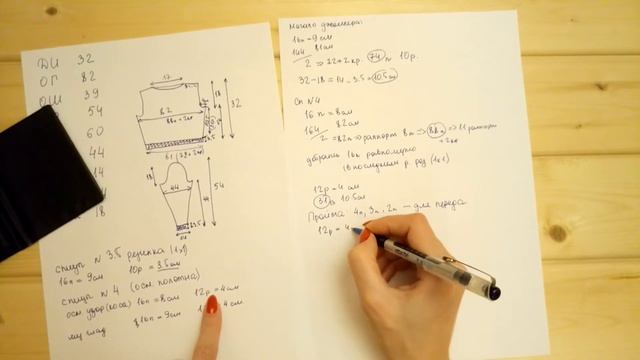 ДИ 32
ОГ 82
ОШ 39
54
60
44
14
18
17
18
32
82
88п+2кр
3.5
61 (78+2кр)
44
44
54
3.5
спицы N 3.5 резинка (1x1)
16п = 9см 10р = 3.5см
спицы N 4 (осн. полотна)
осн. узор (коса) 16п = 8см 12р = 4см
лиц. глад 16п = 9см 4 см
Начало джемпера:
16п = 9см
144 81см
2 => 72+2кр. 74п 10р.
32-18 = 14-3.5 = 10.5см
Сп N4
16п = 8см
164 82см
2 = 82п => раппорт 8п => 88п => 11 раппорт
+2кр
добрать 16п равномерно
в последнем р. рез (1x1)
12р = 4см
31р 10.5см
Пройма 4п, 3п, 2п — для переда
12р = 4